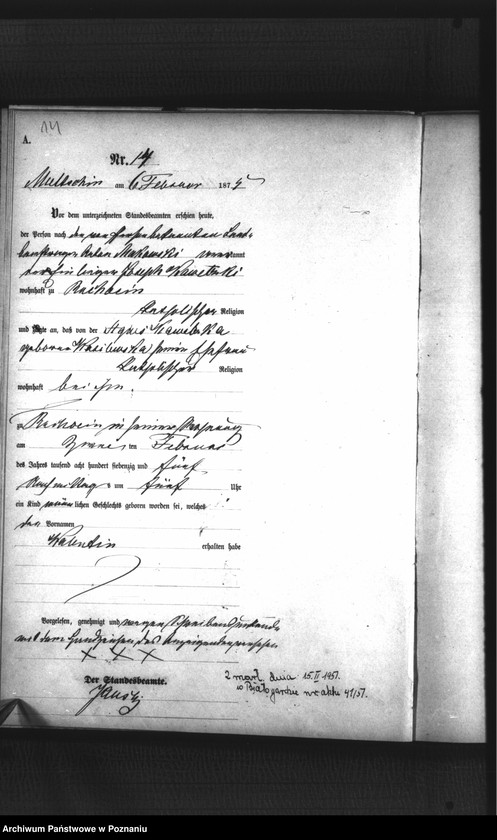 14
A.
Nr. 14
Meltschin am 6 Februar 1875
Vor dem unterzeichneten Standesbeamten erschien heute,
der Person nach
Anton Makowski kannt
Joseph Kawetzki
wohnhaft zu Rachwin
katholischer Religion
und zeigte an, daß von der Agnes Kawetzka
geborene seiner Ehefrau
katholischer Religion
wohnhaft bei ihm.
zu Rachwin in seiner Wohnung
am zweiten Februar
des Jahres tausend acht hundert siebenzig und fünf
Nachmittags um fünf Uhr
ein Kind männlichen Geschlechts geboren worden sei, welches
den Vornamen
Walentin erhalten habe
Vorgelesen, genehmigt und wegen
mit dem Handzeichen des Anzeigenden versehen
X X X
Der Standesbeamte.
2 marł dnia 15.II 1951.
w Białogardzie nr aktu 41/51.
Archiwum Państwowe w Poznaniu